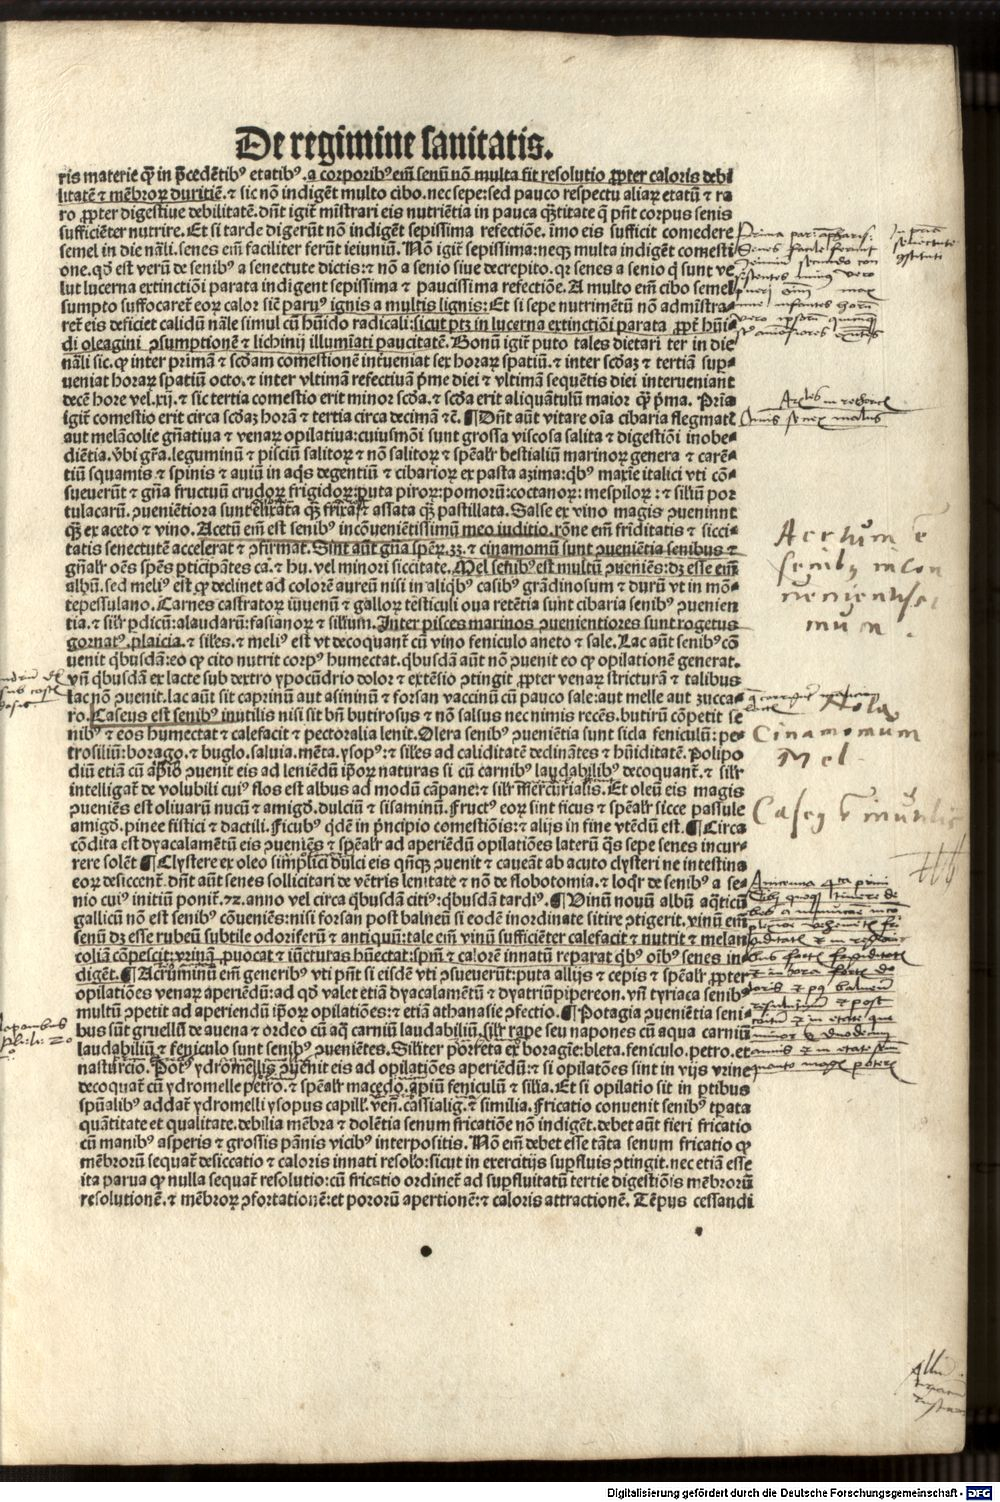 De regimine sanitatis.
ris materie qȝ in p̄cedētibꝰ etatibꝰ. a corporibꝰ em̄ senū nō multa fit resolutio ꝓpter caloris debi
litatē ⁊ mēbroꝝ duritiē. ⁊ sic nō indigēt multo cibo. nec sepe: sed pauco respectu aliaꝝ etatū ⁊ ra
ro ꝓpter digestiue debilitatē. dn̄t igit̄ mīstrari eis nutriētia in pauca q̄titate q̄ pn̄t corpus senis
sufficiēter nutrire. Et si tarde digerūt nō indigēt sepissima refectiōe. imo eis sufficit comedere
semel in die nāli. senes em̄ faciliter ferūt ieiuniū. Nō igit̄ sepissima: neqȝ multa indigēt comesti
one. qd̄ est verū de senibꝰ a senectute dictis: ⁊ nō a senio siue decrepito. qꝛ senes a senio q̄ sunt ve
lut lucerna extinctiōi parata indigent sepissima ⁊ paucissima refectiōe. A multo em̄ cibo semel
sumpto suffocaret̄ eoꝝ calor sic̄ paruꝰ ignis a multis lignis: Et si sepe nutrimētū nō admīstra-
ret̄ eis deficiet calidū nāle simul cū hūido radicali: sicut ptȝ in lucerna extinctiōi parata ꝓpt̄ hūi-
di oleagini ꝯsumptionē ⁊ lichinij illumīati paucitatē. Bonū igit̄ puto tales dietari ter in die
nāli sic. ꝙ inter primā ⁊ scd̄am comestionē interueniat sex horaꝝ spatiū. ⁊ inter scd̄aȝ ⁊ tertiā sup̄-
ueniat horaꝝ spatiū octo. ⁊ inter vltimā refectiuā p̄me diei ⁊ vltimā sequētis diei interueniant
decē hore vel. xij. ⁊ sic tertia comestio erit minor scd̄a. ⁊ scd̄a erit aliquātulū maior qȝ p̄ma. Pria
igit̄ comestio erit circa scd̄aȝ horā ⁊ tertia circa decimā ⁊c̄. ¶ Dn̄t aūt vitare oīa cibaria flegmatē
aut melācolie gn̄atiua ⁊ venaꝝ opilatiua: cuiusmōi sunt grossa viscosa salita ⁊ digestiōi inobe-
diētia. v̄bi gr̄a. leguminū ⁊ pisciū salitoꝝ ⁊ nō salitoꝝ ⁊ spēalr̄ bestialiū marinoꝝ genera ⁊ carē-
tiū squamis ⁊ spinis ⁊ auiū in aq̄s degentiū ⁊ cibarioꝝ ex pasta azima: qbꝰ maxie italici vti cō-
sueuerūt ⁊ gn̄a fructuū crudoꝝ frigidoꝝ: puta piroꝝ: pomorū: coctanoꝝ: mespiloꝝ: ⁊ siliū por
tulacarū. ꝯueniētiora sunt elixata qȝ frixa ⁊ assata qȝ pastillata. Salse ex vino magis ꝯueniunt
qȝ ex aceto ⁊ vino. Acetū em̄ est senibꝰ incōueniētissimū meo iuditio. rōne em̄ friditatis ⁊ sicci-
tatis senectutē accelerat ⁊ ꝯfirmat. Sint aūt gn̄a spēꝝ. zȝ. ⁊ cinamomū sunt ꝯueniētia senibus ⁊
gn̄alr̄ oēs spēs ꝑticipātes ca. ⁊ hu. vel minori siccitate. Mel senibꝰ est multū ꝯueniēs: dȝ esse em̄
albū. sed meliꝰ est ꝙ declinet ad colorē aureū nisi in aliq̄bꝰ casibꝰ grādinosum ⁊ durū vt in mō-
tepessulano. Carnes castratoꝝ iuuenū ⁊ galloꝝ testiculi oua retētia sunt cibaria senibꝰ ꝯuenien
tia. ⁊ silr̄ ꝑdicū: alaudarū: fasianoꝝ ⁊ siliū. Inter pisces marinos ꝯuenientiores sunt rogetus
gornatꝰ. plaicia. ⁊ siles. ⁊ meliꝰ est vt decoquant̄ cū vino feniculo aneto ⁊ sale. Lac aūt senibꝰ cō
uenit qbusdā: eo ꝙ cito nutrit corpꝰ humectat. qbusdā aūt nō ꝯuenit eo ꝙ opilationē generat.
vn̄ qbusdā ex lacte sub dextro ypocūdrio dolor ⁊ extēsio ꝯtingit ꝓpter venaꝝ stricturā ⁊ talibus
lac nō ꝯuenit. lac aūt sit caprinū aut asininū ⁊ forsan vaccinū cū pauco sale: aut melle aut zucca-
ro. Caseus est senibꝰ inutilis nisi sit bn̄ butirosus ⁊ nō salsus nec nimis recēs. butirū cōpetit se
nibꝰ ⁊ eos humectat ⁊ calefacit ⁊ pectoralia lenit. Olera senibꝰ ꝯueniētia sunt sicla feniculū: pe-
trosiliū: borago. ⁊ buglo. saluia. mēta. ysopꝰ: ⁊ siles ad caliditatē declinātes ⁊ hūiditatē. Polipo
diū etiā cū apio ꝯuenit eis ad leniēdū ip̄oꝝ naturas si cū carnibꝰ laudabilibꝰ decoquant̄. ⁊ silr̄
intelligat̄ de volubili cuiꝰ flos est albus ad modū cāpane: ⁊ silr̄ mercurialis. Et oleū eis magis
ꝯueniēs est oliuarū nucū ⁊ amigd̄. dulciū ⁊ sisaminū. Fructꝰ eoꝝ sint ficus ⁊ spēalr̄ sicce passule
amigd̄. pinee fistici ⁊ dactili. Ficubꝰ qdē in p̄ncipio comestiōis: ⁊ alijs in fine vtēdū est. ¶ Circa
cōdita est dyacalamētū eis ꝯueniēs ⁊ spēalr̄ ad aperiēdū opilatiōes laterū q̄s sepe senes incur-
rere solēt ¶ Clystere ex oleo simplici dulci eis qn̄qȝ ꝯuenit ⁊ caueāt ab acuto clysteri ne intestina
eoꝝ desiccent̄. dn̄t aūt senes sollicitari de vētris lenitate ⁊ nō de flobotomia. ⁊ loqr̄ de senibꝰ a se-
nio cuiꝰ initiū ponit̄. ⁊z. anno vel circa qbusdā citiꝰ: qbusdā tardiꝰ. ¶ Vinū nouū albū aq̄ticū
gallicū nō est senibꝰ cōueniēs: nisi forsan post balneū si eodē inordinate sitire ꝯtigerit. vinū em̄
senū dȝ esse rubeū subtile odoriferū ⁊ antiquū: tale em̄ vinū sufficiēter calefacit ⁊ nutrit ⁊ melan
coliā cōpescit: vrinā ꝓuocat ⁊ iūcturas hūectat: spm̄ ⁊ calorē innatū reparat qbꝰ oibꝰ senes in-
digēt. ¶ Acruminū em̄ generibꝰ vti pn̄t si eisdē vti ꝯsueuerūt: puta allijs ⁊ cepis ⁊ spēalr̄ ꝓpter
opilatiōes venaꝝ aperiēdū: ad qd̄ valet etiā dyacalamētū ⁊ dyatriūpipereon. vn̄ tyriaca senibꝰ
multū ꝯpetit ad aperiendū ip̄oꝝ opilatiōes: ⁊ etiā athanasie ꝯfectio. ¶ Potagia ꝯueniētia seni-
bus sūt gruellū de auena ⁊ ordeo cū aq̄ carniū laudabiliū. silr̄ rape seu napones cū aqua carniū
laudabiliū ⁊ feniculo sunt senibꝰ ꝯueniētes. Siliter porreta ex boragie: bleta. feniculo. petro. et
nasturcio. Potꝰ ydromellis ꝯuenit eis ad opilatiōes aperiēdū: ⁊ si opilatōes sint in vijs vrine
decoquat̄ cū ydromelle petro. ⁊ spēalr̄ macedo. apiū feniculū ⁊ silia. Et si opilatio sit in ꝑtibus
spūalibꝰ addat̄ ydromelli ysopus capill̄. ven̄. cassialig. ⁊ similia. Fricatio conuenit senibꝰ tꝑata
quātitate et qualitate. debilia mēbra ⁊ dolētia senum fricatiōe nō indigēt. debet aūt fieri fricatio
cū manibꝰ asperis ⁊ grossis pānis vicibꝰ interpositis. Nō em̄ debet esse tāta senum fricatio ꝙ
mēbrorū sequat̄ desiccatio ⁊ caloris innati resolo: sicut in exercitijs sup̄fluis ꝯtingit. nec etiā esse
ita parua ꝙ nulla sequat̄ resolutio: cū fricatio ordinet̄ ad sup̄fluitatū tertie digestiōis mēbrorū
resolutionē. ⁊ mēbroꝝ ꝯfortationē: et pororū apertionē: ⁊ caloris attractionē. Tēpus cessandi
Acetum ē
senibꝰ incon
uenientissi
mum.
Nota
Cinamomum
Mel.
Caseꝰ ē inutilis
Digitalisierung gefördert durch die Deutsche Forschungsgemeinschaft - DFG